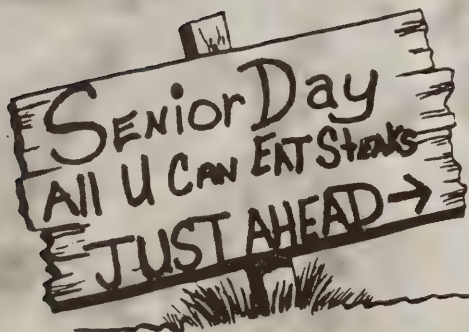 SENior Day
All U CAN EAT StEAKS
JUST AHEAD →